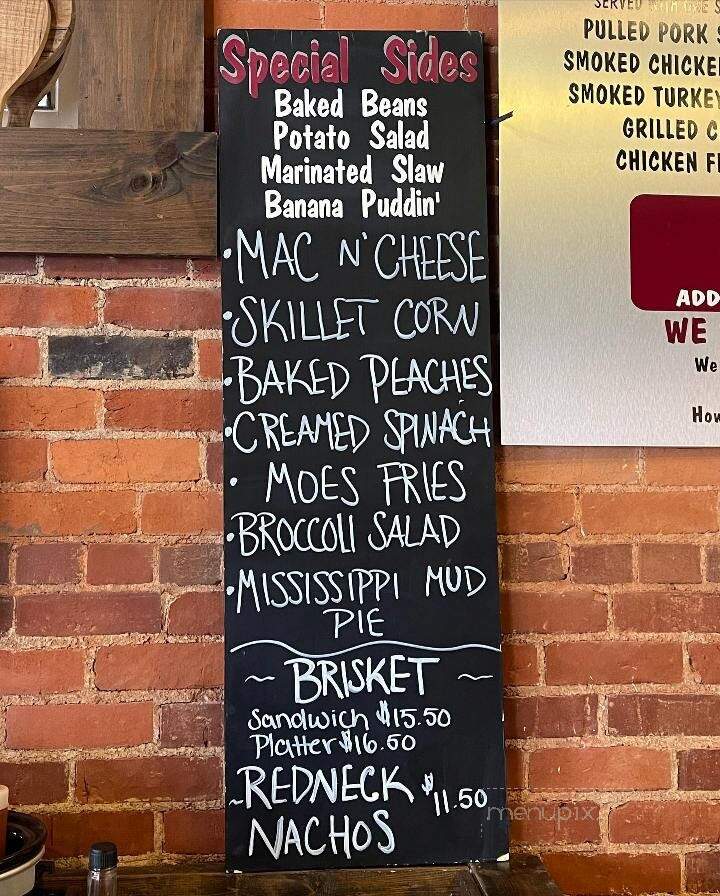 Special Sides
Baked Beans
Potato Salad
Marinated Slaw
Banana Puddin'
·MAC N' CHEESE
·SKILLET CORN
·BAKED PEACHES
·CREAMED SPINACH
· MOES FRIES
·BROCCOLI SALAD
·MISSISSIPPI MUD
PIE
~ BRISKET ~
Sandwich $15.50
Platter $16.50
~REDNECK $11.50
NACHOS
SERVED WITH ONE
PULLED PORK
SMOKED CHICKE
SMOKED TURKEY
GRILLED C
CHICKEN F
ADD
WE
We
How
menupix